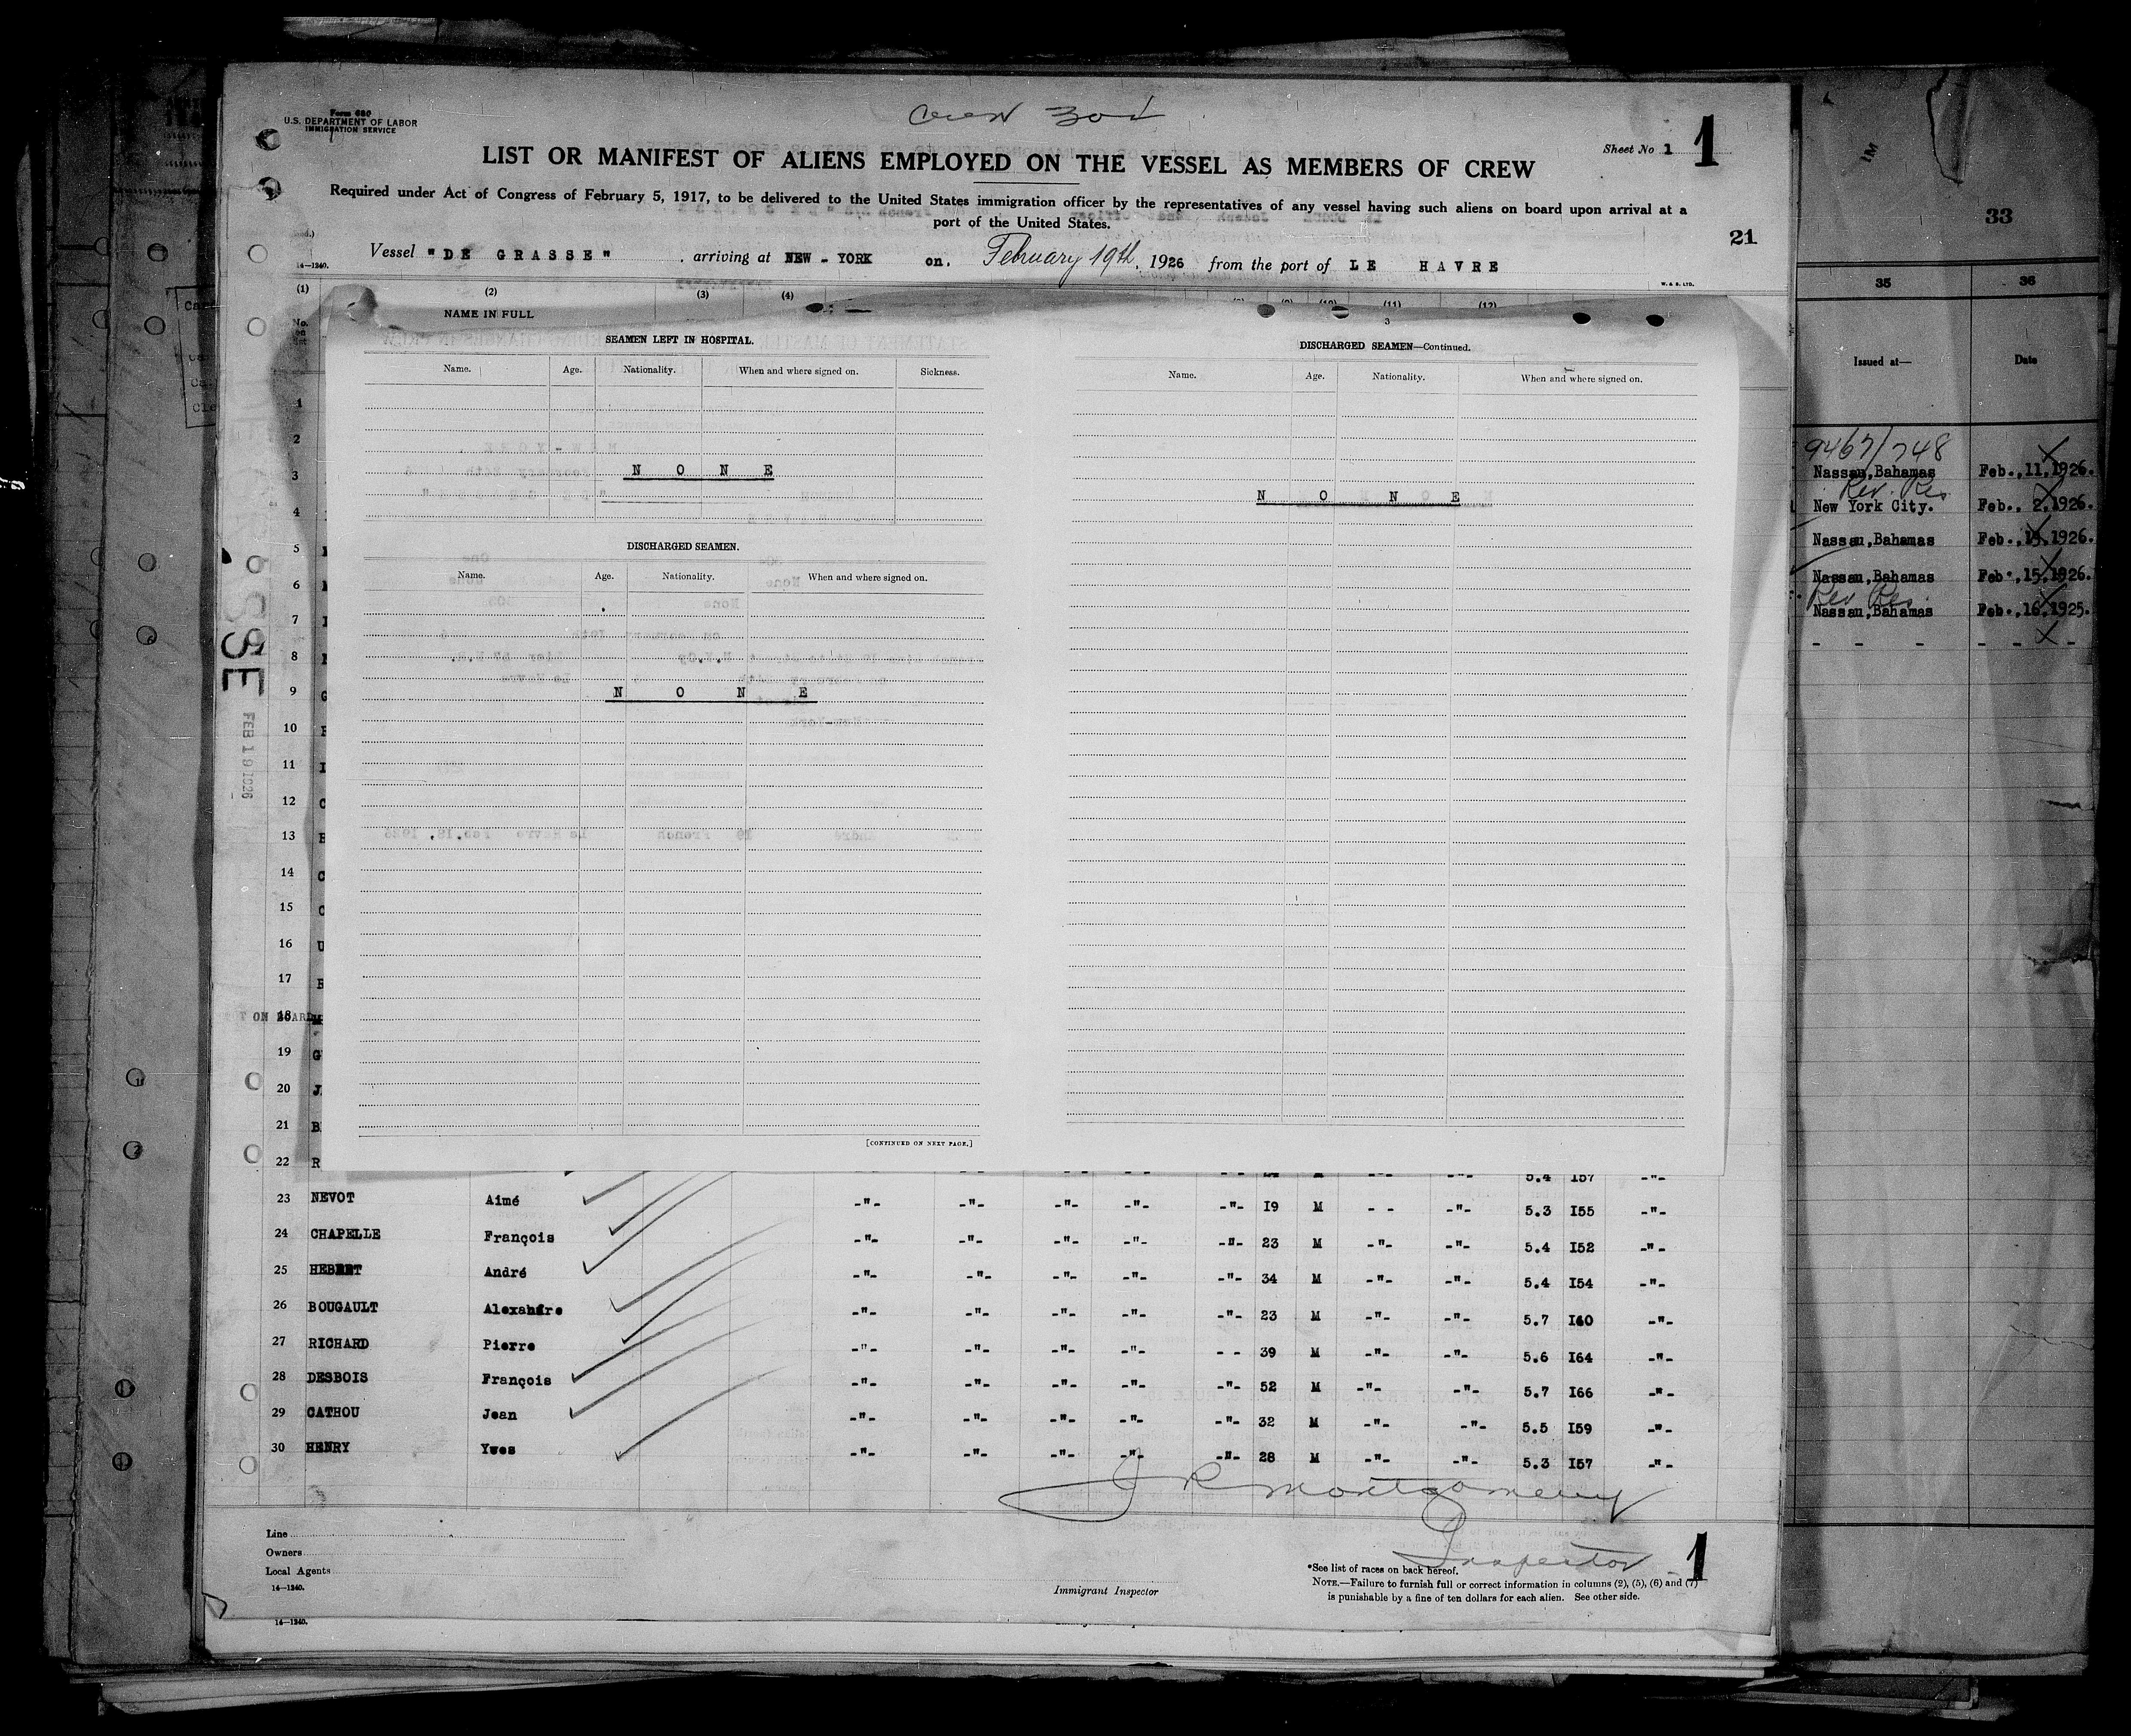 Crew 30
Form 680
U.S. DEPARTMENT OF LABOR
IMMIGRATION SERVICE
Sheet No 1 1
LIST OR MANIFEST OF ALIENS EMPLOYED ON THE VESSEL AS MEMBERS OF CREW
Required under Act of Congress of February 5, 1917, to be delivered to the United States immigration officer by the representatives of any vessel having such aliens on board upon arrival at a
port of the United States.
21
Vessel "DE GRASSE" , arriving at NEW-YORK on, February 19th, 1926 from the port of LE HAVRE
14—1240.
W. & S. LTD.
(1) (2) (3) (4) (11) (12)
No. NAME IN FULL
3
SEAMEN LEFT IN HOSPITAL.
Name. Age. Nationality. When and where signed on. Sickness.
N O N E
DISCHARGED SEAMEN.
Name. Age. Nationality. When and where signed on.
N O N E
[CONTINUED ON NEXT PAGE.]
DISCHARGED SEAMEN—Continued.
Name. Age. Nationality. When and where signed on.
N O N E
1
2
3
4
5
6
7
8
9 G
10
11 I
12 C
13
14 C
15 C
16 U
17
18 M
19 G
20 J
21 B
22 R 5.4 I57 -"-
SSE
FEB 19 1926
ON BOARD
23 NEVOT Aimé -"- -"- -"- -"- -"- 19 M - - -"- 5.3 I55 -"-
24 CHAPELLE François -"- -"- -"- -"- -"- 23 M -"- -"- 5.4 I52 -"-
25 HEBERT André -"- -"- -"- -"- -"- 34 M -"- -"- 5.4 I54 -"-
26 BOUGAULT Alexandre -"- -"- -"- -"- -"- 23 M -"- -"- 5.7 I60 -"-
27 RICHARD Pierre -"- -"- -"- -"- - - 39 M -"- -"- 5.6 I64 -"-
28 DESBOIS François -"- -"- -"- -"- -"- 52 M -"- -"- 5.7 I66 -"-
29 CATHOU Jean -"- -"- -"- -"- -"- 32 M -"- -"- 5.5 I59 -"-
30 HENRY Yves -"- -"- -"- -"- -"- 28 M -"- -"- 5.3 I57 -"-
J R Montgomery
Inspector
Line
Owners
Local Agents
14—1240.
Immigrant Inspector
*See list of races on back hereof.
NOTE.—Failure to furnish full or correct information in columns (2), (5), (6) and (7)
is punishable by a fine of ten dollars for each alien. See other side.
1
14—1240.
33
35 36
Issued at— Date
9467/748
Nassau,Bahamas Feb.,11,1926.
Rev. Res
New York City. Feb., 2,1926.
Nassau,Bahamas Feb.,15,1926.
Nassau,Bahamas Feb.,15,1926.
Rev Res.
Nassau,Bahamas Feb.,16,1925.
- - - - - -